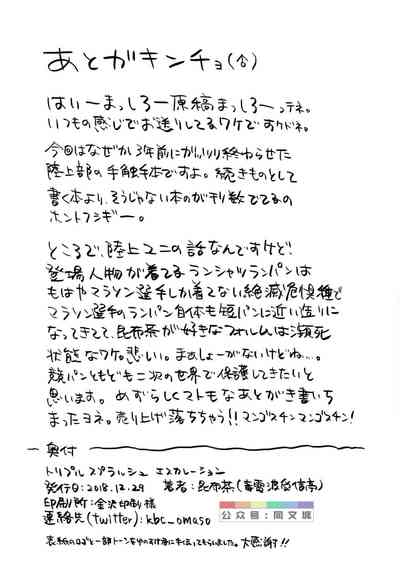 あとがキンチョ(合)
はいーまっしろー原稿まっしろーってネ。
いつもの感じでお送りしてるワケですケドネ。
今回はなぜか3年前にがっつり終わらせた
陸上部の手触手本ですよ。続きものとして
書く本より、そうじゃない本のが刊数でてるの
ホントフシギー。
ところで、陸上ユニの話なんですけど!
登場人物が着てるランシャツランパンは
もはやマラソン選手しか着てない絶滅危惧種で
マラソン選手のランパン自体も短パンに近い造りに
なってきてて、昆布茶が好きなフォルムは瀕死
状態なワケね悲しい。まぁしょーがないけどね…。
競パンともども二次の世界で保護してきたいと
思います。めずらしくマトモなあとがき書いち
まったヨネ。売り上げ落ちちゃう!!マンゴスチンマンゴスチン!
奥付
トリプル スプラッシュ エスカレーション
発行日:2018.12.29 著者:昆布茶(毒電波受信亭)
印刷所:金沢印刷 様
連絡先(twitter):kbc_omaso
公众号:同文城
表紙のロゴと一部トーンを手伝ってもらいました。大感謝!!